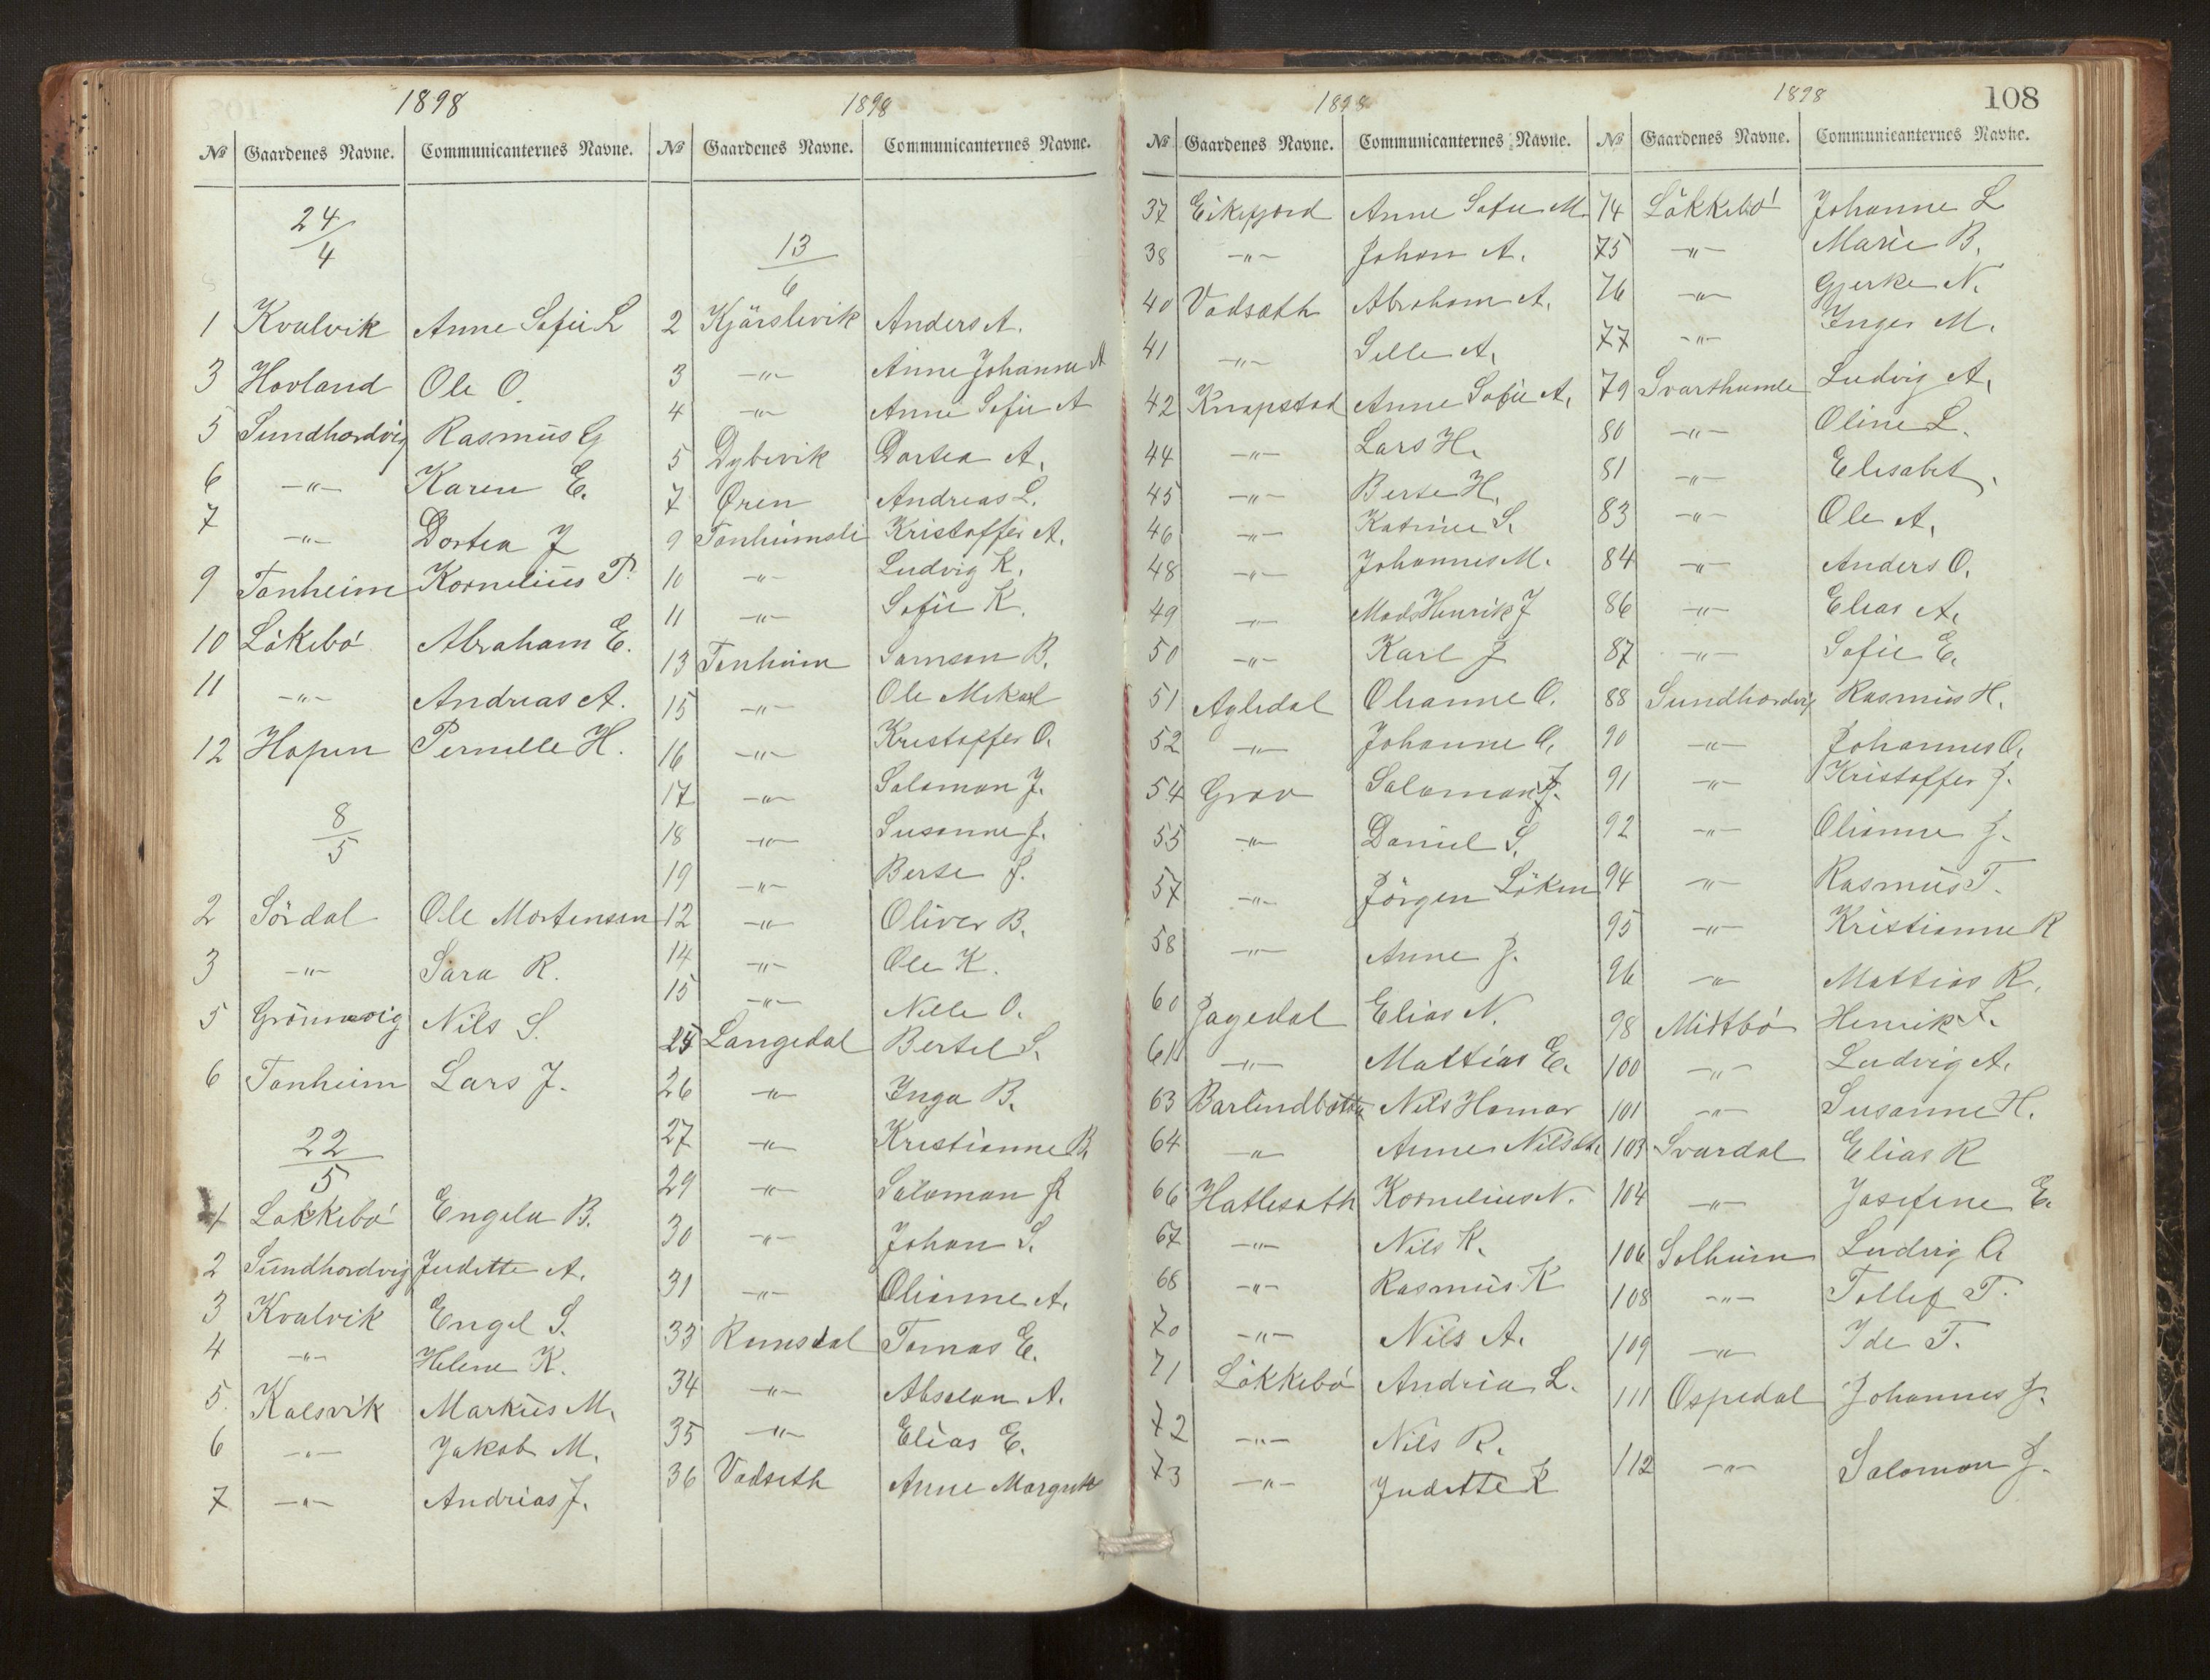 1898
№ Gaardenes Navne. Communicanternes Navne.
24/4
1 Kvalvik Anne Sofie L
3 Hovland Ole O.
5 Sundhordvig Rasmus G
6 -"- Karen E.
7 -"- Dortea J
9 Tonheim Kornelius T.
10 Lökebö Abraham E.
11 -"- Andreas A.
12 Hopen Pernille H.
8/5
2 Sördal Ole Mortensen
3 -"- Sara R.
5 Grönnevig Nils S.
6 Tonheim Lars J.
22/5
1 Lökkebö Engelu B.
2 Sundhordvig Judette A.
3 Kvalvik Engel S.
4 -"- Helene K.
5. Kalsvik Markus M.
6 -"- Jakob M.
7 -"- Andrias J.
1898
№ Gaardenes Navne. Communicanternes Navne.
13/6
2 Kjärslivik Anders A.
3 -"- Anne Johanne A
4 -"- Anne Sofie A
5 Dybevik Dortea A.
7 Øren Andreas L.
9 Tonheimsli Kristoffer A.
10 -"- Ludvig K.
11 -"- Sofie K.
13 Tonheim Samson B.
15 -"- Ole Mikal
16 -"- Kristoffer O.
17 -"- Salomon J.
18 -"- Susanne J.
19 -"- Berte J.
12 -"- Oliver B.
14 -"- Ole K.
15 -"- Nille O.
25 Langedal Bertel S.
26 -"- Inga B.
27 -"- Kristianne B.
29 -"- Salomon J
30 -"- Johan S.
31 -"- Olianne A.
33 Ramsdal Tomas E.
34 -"- Absalon A.
35 -"- Elias E.
36 Vadseth Anne Margrete
1898
№ Gaardenes Navne. Communicanternes Navne.
37 Eikefjord Anne Sofie M.
38 -"- Johan A.
40 Vadsæth Abraham A.
41 -"- Sille A.
42 Knapstad Anne Sofie A.
44 -"- Lars H.
45 -"- Berte H.
46 -"- Katrine S.
48 -"- Johannes M.
49 -"- Mads Henrik J
50 -"- Karl J
51 Agledal Olianne O.
52 -"- Johanne O.
54 Grov Salomon J.
55 -"- Daniel S.
57 -"- Jörgen Löken
58 -"- Anne J.
60 Jagedal Elias N.
61 -"- Mattias E.
63 Barlindbotten Nils Hamar
64 -"- Anne Nilsdt.
66 Hatlesæth Kornelius N.
67 -"- Nils K.
68 -"- Rasmus K
70 -"- Nils A.
71 Lökkebö Andrea L.
72 -"- Nils R.
73 -"- Judette K
1898
108
№ Gaardenes Navne. Communicanternes Navne.
74 Lökkebö Johanne L
75 -"- Marie B.
76 -"- Gjerke N.
77 -"- Inger M.
79 Svarthumle Ludvig A.
80 -"- Oline L.
81 -"- Elisabet.
83 -"- Ole A.
84 -"- Anders O.
86 -"- Elias A.
87 -"- Sofie E.
88 Sundhordvig Rasmus H.
90 -"- Johannes O.
91 -"- Kristoffer J.
92 -"- Olianne J.
94 -"- Rasmus T.
95 -"- Kristianne R
96 -"- Mattias R.
98 Midtbö Henrik J.
100 -"- Ludvig A.
101 -"- Susanne H.
103 Svardal Elias R
104 -"- Josefine E.
106 Solheim Ludvig O
108 -"- Tollef T.
109 -"- Ide T.
111 Ospedal Johannes J.
112 -"- Salomon J.